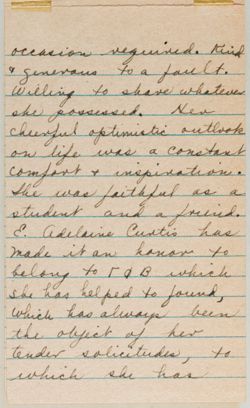 occasion required. Kind
& generous to a fault.
Willing to share whatever
she possessed. Her
cheerful optimistic outlook
on life was a constant
comfort & inspiration.
She was faithful as a
student and a friend.
E. Adelaine Curtis has
made it an honor to
belong to Γ Φ B which
she has helped to found,
which has always been
the object of her
tender solicitudes, to
which she has